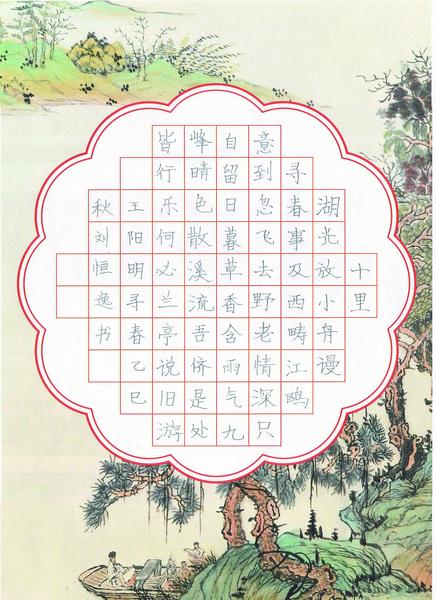 十里
湖光放小舟谩
寻春事及西畴江鸥
意到忽飞去野老情深只
自留日暮草香含雨气九
峰晴色散溪流吾侪是处
皆行乐何必兰亭说旧游
王阳明寻春乙巳
秋刘恒逸书